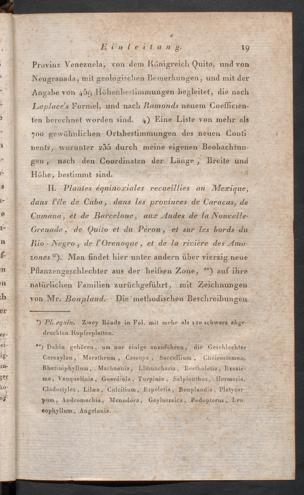 Einleitung. 19
Provinz Venezuela, von dem Königreich Quito, und von
Neugranada, mit geologischen Bemerkungen, und mit der
Angabe von 459 Höhenbestimmungen begleitet, die nach
Laplace's Formel, und nach Ramonds neuem Coefficien-
ten berechnet worden sind. 4) Eine Liste von mehr als
700 gewöhnlichen Ortsbestimmungen des neuen Conti-
nents, worunter 235 durch meine eigenen Beobachtun-
gen, nach den Coordinaten der Länge, Breite und
Höhe, bestimmt sind.
II. Plantes équinoxiales recueillies au Mexique,
dans l'île de Cuba, dans les provinces de Caracas, de
Cumana, et de Barcelone, aux Andes de la Nouvelle-
Grenade, de Quito et du Pérou, et sur les bords du
Rio-Negro, de l'Orenoque, et de la rivière des Ama-
zones *). Man findet hier unter andern über vierzig neue
Pflanzengeschlechter aus der heißen Zone, **) auf ihre
natürlichen Familien zurückgeführt, mit Zeichnungen
von Mr. Bonpland. Die methodischen Beschreibungen
*) Pl. equin. Zwey Bände in Fol. mit mehr als 120 schwarz abge-
druckten Kupferplatten.
**) Dahin gehören, um nur einige anzuführen, die Geschlechter
Ceroxylon, Marathrum, Cassupa, Saccellium, Cheirostemon,
Rhetiniphyllum, Machaonia, Limnocharis, Bertholetia, Exoste-
ma, Vauquelinia, Guardiola, Turpinia, Salpianthus, Hermesia,
Cladostyles, Lilæa, Culcitium, Espeletia, Bonplandia, Platycar-
pum, Andromachia, Menodora, Gaylussacia, Podopterus, Leu-
cophyllum, Angelonia.